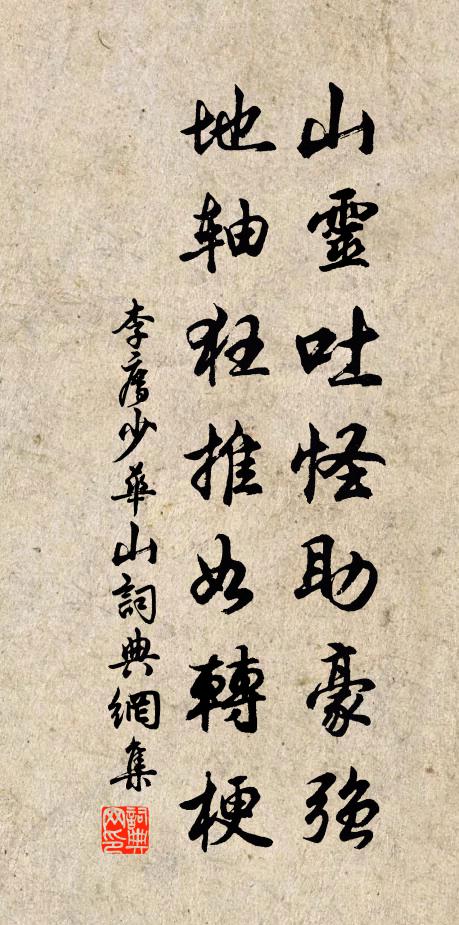 山靈吐怪助豪強
地軸狂推如轉梗
李廌少華山詞典網集
詞典网印